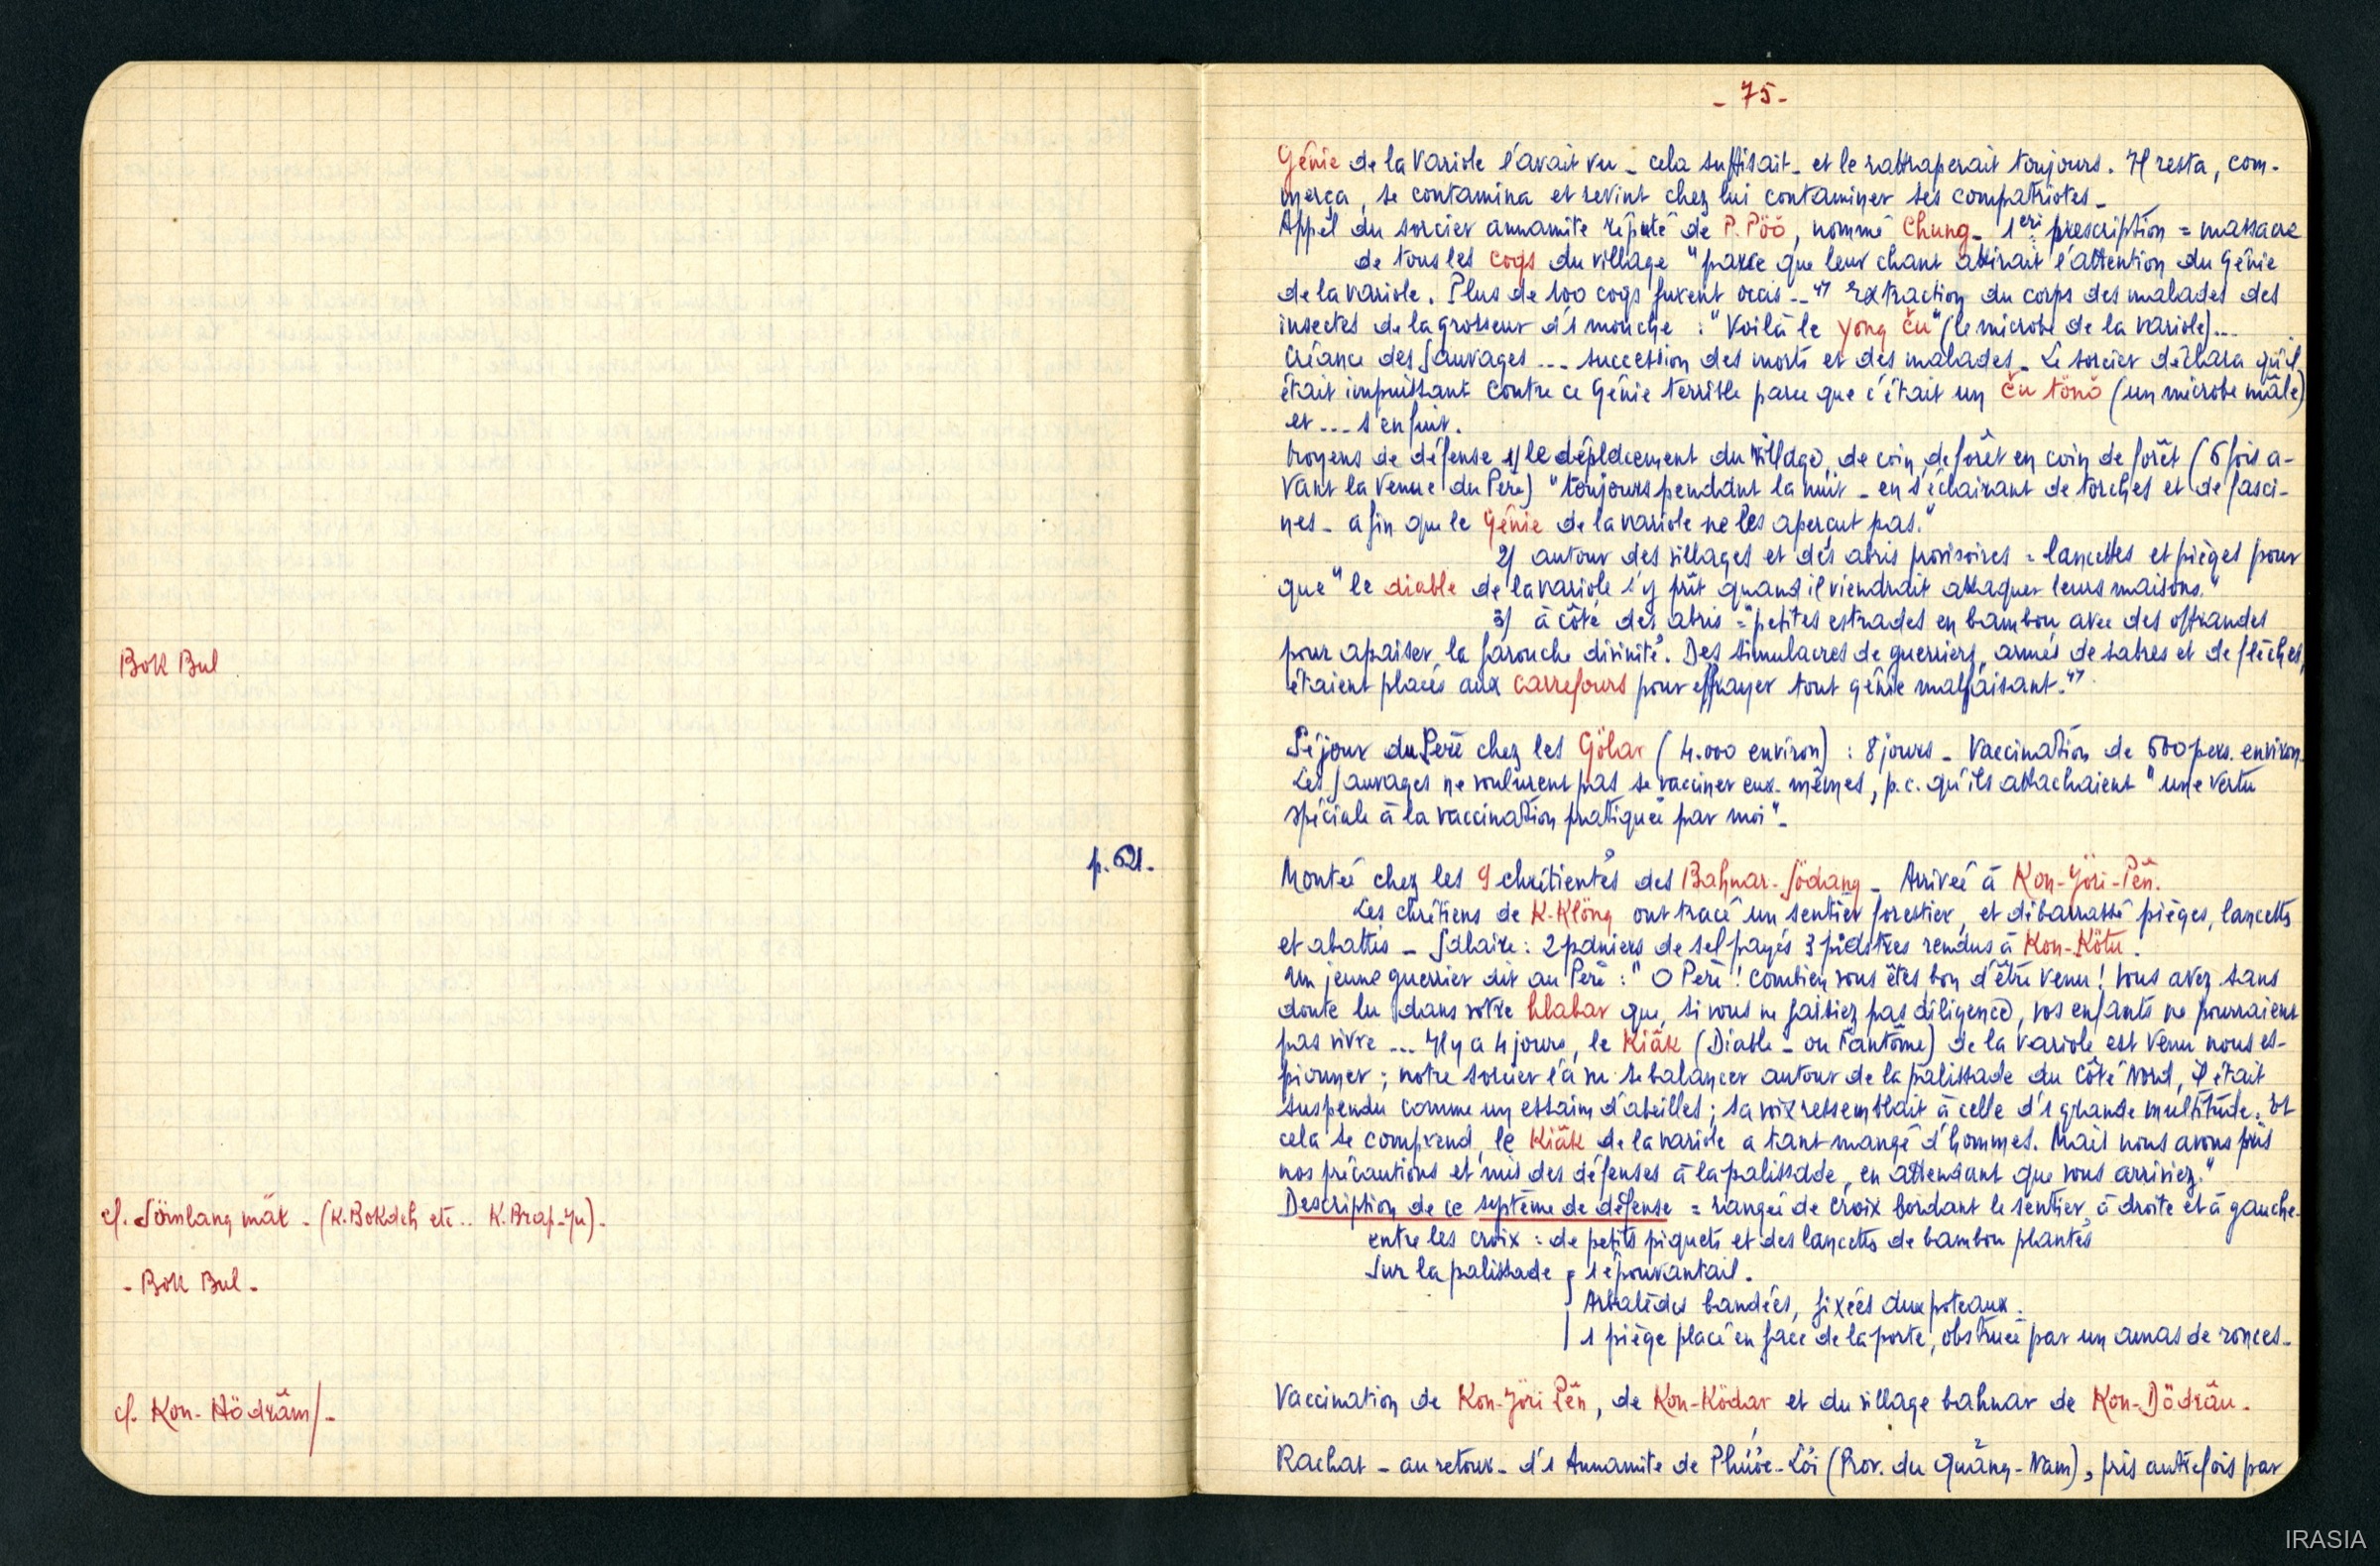 Bok Bul
p. 621.
cf. Sömlang măt - (K.Bokdeh etc.. K.Brap-Yu)-
- Bok Bul -
cf. Kon-Hödrăm/-
- 75 -
Génie de la variole l'avait vu - cela suffisait - et le rattraperait toujours. Il resta, com-
merça, se contamina et revint chez lui contaminer ses compatriotes -
Appel du sorcier annamite réputé de P. Pöö, nommé Chung - 1ère prescription = massacre
de tous les coqs du village "parce que leur chant attirait l'attention du Génie
de la variole. Plus de 100 coqs furent occis .." Extraction du corps des malades des
insectes de la grosseur d'1 mouche : "Voilà le yong ču" (le microbe de la variole)...
Créance des Sauvages ... succession des morts et des malades - Le sorcier déclara qu'il
était impuissant contre ce Génie terrible parce que c'était un ču tönö (un microbe mâle)
et ... s'enfuit.
Moyens de défense 1/ le déplacement du village, de coin de forêt en coin de forêt (6 fois a-
vant la venue du Père) "toujours pendant la nuit - en s'éclairant de torches et de fasci-
nes - afin que le Génie de la variole ne les aperçut pas."
2/ autour des villages et des abris provisoires = lancettes et pièges pour
que "le diable de la variole s'y prît quand il viendrait attaquer leurs maisons."
3/ à côté des abris = "petites estrades en bambou avec des offrandes
pour apaiser la farouche divinité. Des simulacres de guerriers, armés de sabres et de flèches,
étaient placés aux carrefours pour effrayer tout génie malfaisant."
Séjour du Père chez les Gölar (4.000 environ) : 8 jours - Vaccination de 600 pers. environ.
Les Sauvages ne voulurent pas se vacciner eux-mêmes, p.c. qu'ils attachaient "une vertu
spéciale à la vaccination pratiquée par moi" -
Montée chez les 9 chrétientés des Bahnar-Södang - Arrivée à Kon-Jöri-Pĕn.
Les chrétiens de K-Klöng ont tracé un sentier forestier, et débarrassé pièges, lancettes
et abattis - Salaire : 2 paniers de sel payés 3 piastres rendus à Kon-Kötu.
Un jeune guerrier dit au Père : "O Père ! combien vous êtes bon d'être venu ! vous avez sans
doute lu dans votre hlabar que, si vous ne faisiez pas diligence, vos enfants ne pourraient
pas vivre ... Il y a 4 jours, le Kiăk (Diable - ou Fantôme) de la variole est venu nous es-
pionner ; notre sorcier l'a vu se balancer autour de la palissade du côté Nord, il était
suspendu comme un essaim d'abeilles ; sa voix ressemblait à celle d'1 grande multitude. Et
cela se comprend, le Kiăk de la variole a tant mangé d'hommes. Mais nous avons pris
nos précautions et mis des défenses à la palissade, en attendant que vous arriviez."
Description de ce système de défense = rangée de croix bordant le sentier, à droite et à gauche -
entre les croix : de petits piquets et des lancettes de bambou plantés
Sur la palissade { 1 épouvantail.
Arbalètes bandées, fixées aux poteaux.
1 piège placé en face de la porte, obstruée par un amas de ronces -
Vaccination de Kon-Jöri Pĕn, de Kon-Ködar et du village bahnar de Kon-Dödrâu -
Rachat - au retour - d'1 Annamite de Phước-Lợi (Prov. du Quảng-Nam), pris autrefois par
IRASIA